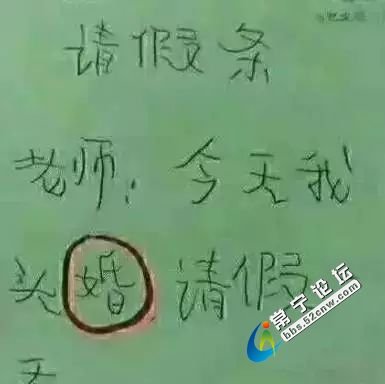 请假条
老师：今天我
头婚请假
天
常宁论坛
bbs.52cnw.com